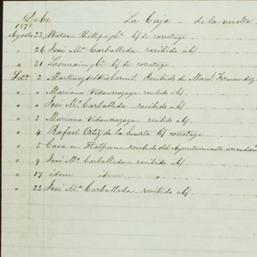 Debe La Caja de la vuelta
1872
Agosto 22, Watson Phillips
" 26 José Ma. Carballeda recibido a/c
" 31 de corretage
Set. 2 Martinez del Recibido de Manl. Fernandez
" " Mariana Vidaurrazaga recibido a/c
" " José Ma. Carballeda recibido a/c
" 3 Mariana Vidaurrazaga recibido a/c
" 4 Rafael Ortiz de la Huerta c/ corretage
" 5 Casa en Tlalpam recibido del Ayuntamiento
" 9 José Ma. Carballeda recibido a/c
" 17 idem idem " "
" 23 José Ma. Carballeda recibido a/c